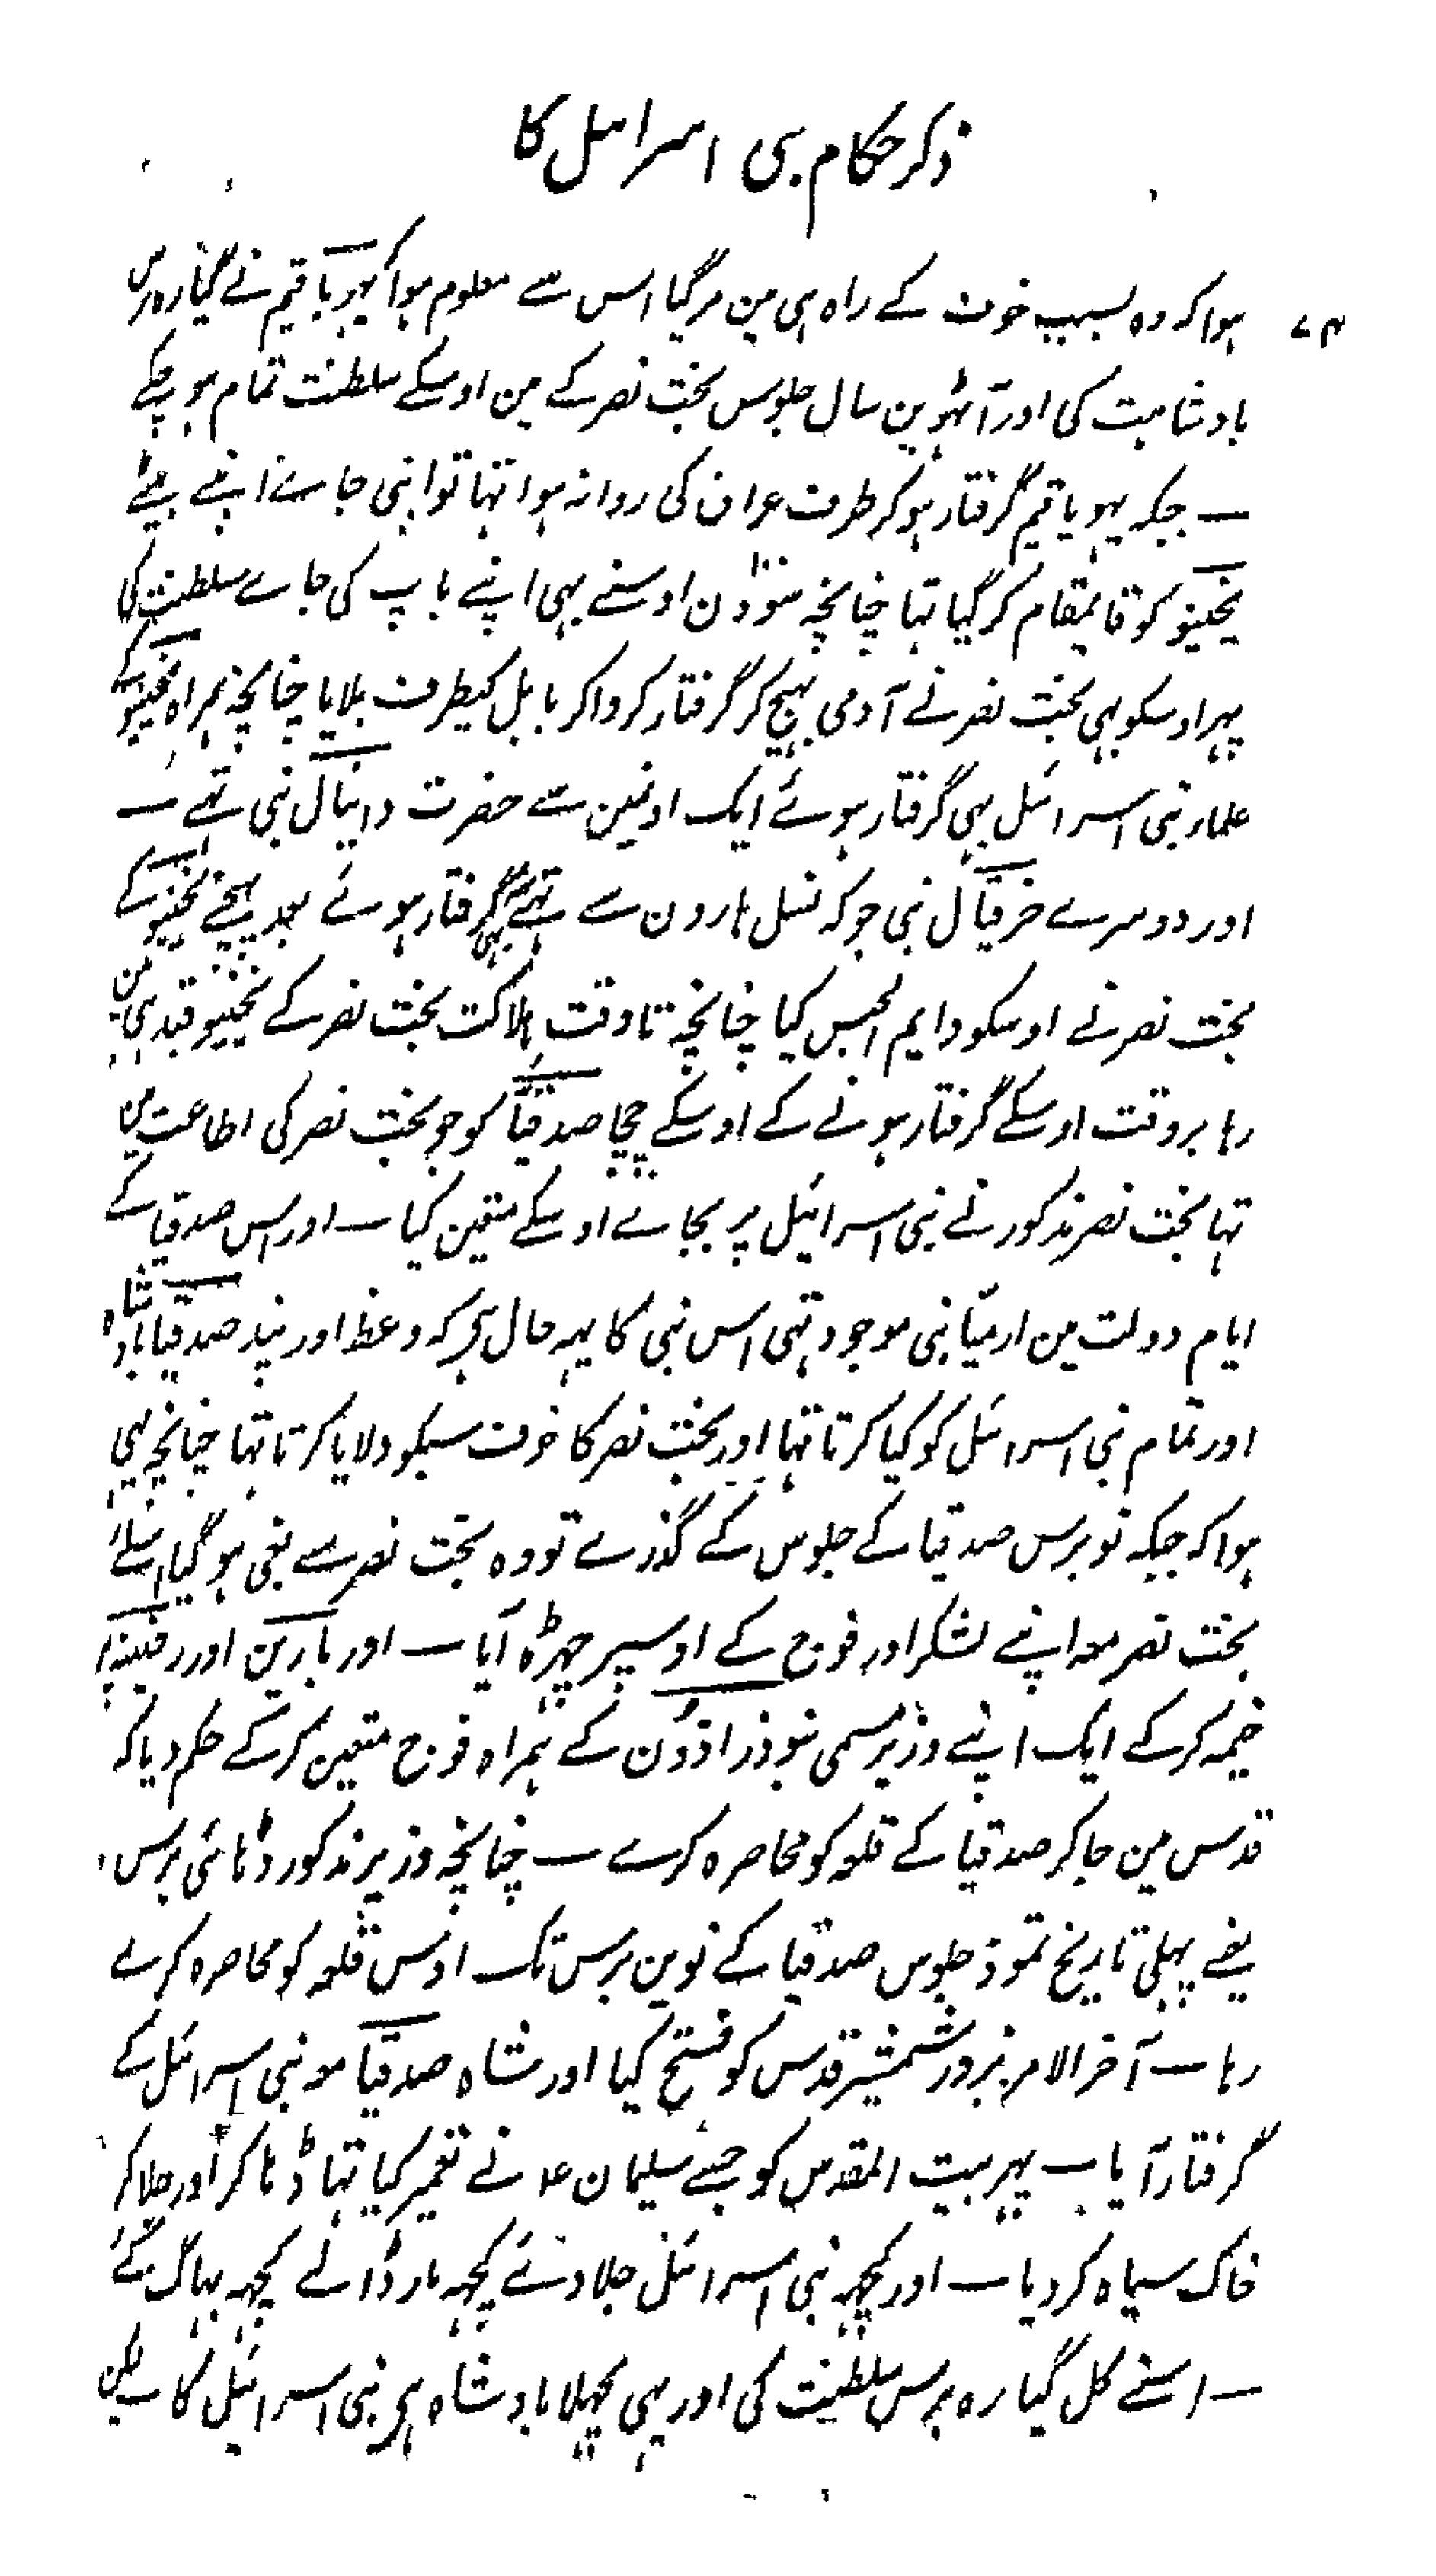 ذکر حکام بنی اسرائیل کا
۷۴
ہوا کہ وہ بسبب خوف کے راہ ہی مین مرگیا اس سے معلوم ہوا کہ یہویاقیم نے گیارہ برس
بادشاہت کی اور آٹھوین سال جلوس بخت نصر کے مین اوسکے سلطنت تمام ہو چکے
— جبکہ یہویاقیم گرفتار ہوکر طرف عراق کی روانہ ہوا تہا تو اپنی جاے اپنے بیٹے
یخنیو کو قایمقام کر گیا تہا چنانچہ سو دن اوسنے بہی اپنے باپ کی جاے سلطنت کی
پہر اوسکو بہی بخت نصر نے آدمی بہیج کر گرفتار کرواکر بابل کیطرف بلایا چنانچہ ہمراہ یخنیو کے
علماء بنی اسرائیل بہی گرفتار ہوئے ایک اونمین سے حضرت دانیال نبی تہے —
اور دوسرے حزقیال نبی جو کہ نسل ہارون سے تہے بہی گرفتار ہوئے بعد پہنچنے یخنیو کے
بخت نصر نے اوسکو دایم الحبس کیا چنانچہ تا وقت ہلاکت بخت نصر کے یخنیو قید ہی مین
رہا بر وقت اوسکے گرفتار ہونے کے اوسکے چچا صدقیا کو جو بخت نصر کی اطاعت مین
تہا بخت نصر مذکور نے بنی اسرائیل پر بجاے اوسکے متعین کیا — اور اس صدقیا کے
ایام دولت مین ارمیا نبی موجود تہی اس نبی کا یہہ حال ہی کہ وعظ اور پند صدقیا بادشاہ
اور تمام بنی اسرائیل کو کیا کرتا تہا اور بخت نصر کا خوف سبکو دلایا کرتا تہا چنانچہ یہی
ہوا کہ جبکہ نو برس صدقیا کے جلوس کے گذرے تو وہ بخت نصر سے بغی ہو گیا اسلئے
بخت نصر معہ اپنے لشکر اور فوج کے اوسپر چہڑہ آیا — اور بارین اور رفنیہ پر
خیمہ کر کے ایک اپنے وزیر مسمی نبو ذراذون کے ہمراہ فوج متعین کر کے حکم دیا کہ
قدس مین جا کر صدقیا کے قلعہ کو محاصرہ کرے — چنانچہ وزیر مذکور ڈہائی برس
یعنے پہلی تاریخ تموز جلوس صدقیا کے نوین برس تک اوس قلعہ کو محاصرہ کرے
رہا — آخر الامر بزور شمشیر قدس کو فتح کیا اور شاہ صدقیا معہ بنی اسرائیل کے
گرفتار آیا — پہر بیت المقدس کو جسے سلیمان ع نے تعمیر کیا تہا ڈہا کر اور جلا کر
خاک سیاہ کر دیا — اور کچہہ بنی اسرائیل جلا دئے کچہہ مار ڈالے کچہہ بہاگ گئے
— اسنے کل گیارہ برس سلطنت کی اور یہی پچہلا بادشاہ ہی بنی اسرائیل کا — لیکن